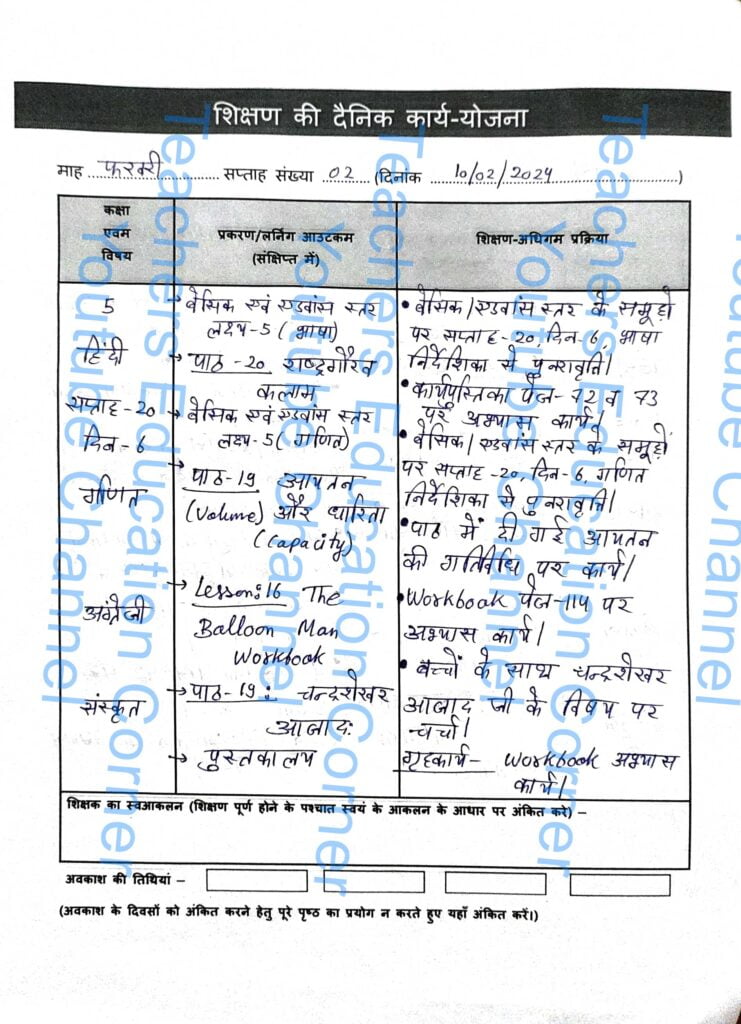 शिक्षण की दैनिक कार्य-योजना
माह फरवरी सप्ताह संख्या 02 (दिनांक 10/02/2024)
कक्षा
एवम
विषय
प्रकरण/लर्निंग आउटकम
(संक्षिप्त में)
शिक्षण-अधिगम प्रक्रिया
5
हिंदी
सप्ताह-20
दिन-6
गणित
अंग्रेजी
संस्कृत
→ बेसिक एवं एडवांस स्तर
लक्ष्य-5 (भाषा)
→ पाठ-20 राष्ट्रगौरव
कलाम
→ बेसिक एवं एडवांस स्तर
लक्ष्य-5 (गणित)
→ पाठ-19 आयतन
(Volume) और धारिता
(Capacity)
→ Lesson:16 The
Balloon Man
Workbook
→ पाठ-19: चन्द्रशेखर
आजादः
→ पुस्तकालय
• बेसिक/एडवांस स्तर के समूहों
पर सप्ताह-20, दिन-6, भाषा
निर्देशिका से पुनरावृत्ति।
• कार्यपुस्तिका पेज-72 व 73
पर अभ्यास कार्य।
• बेसिक/एडवांस स्तर के समूहों
पर सप्ताह-20, दिन-6, गणित
निर्देशिका से पुनरावृत्ति।
• पाठ में दी गई आयतन
की गतिविधि पर कार्य।
• Workbook पेज-114 पर
अभ्यास कार्य।
• बच्चों के साथ चन्द्रशेखर
आजाद जी के विषय पर
चर्चा।
गृहकार्य- Workbook अभ्यास
कार्य।
शिक्षक का स्वआकलन (शिक्षण पूर्ण होने के पश्चात स्वयं के आकलन के आधार पर अंकित करे) –
अवकाश की तिथियां –
(अवकाश के दिवसों को अंकित करने हेतु पूरे पृष्ठ का प्रयोग न करते हुए यहाँ अंकित करें।)
Teachers Education Corner
Youtube Channel
Teachers Education Corner
Youtube Channel
Teachers Education Corner
Youtube Channel